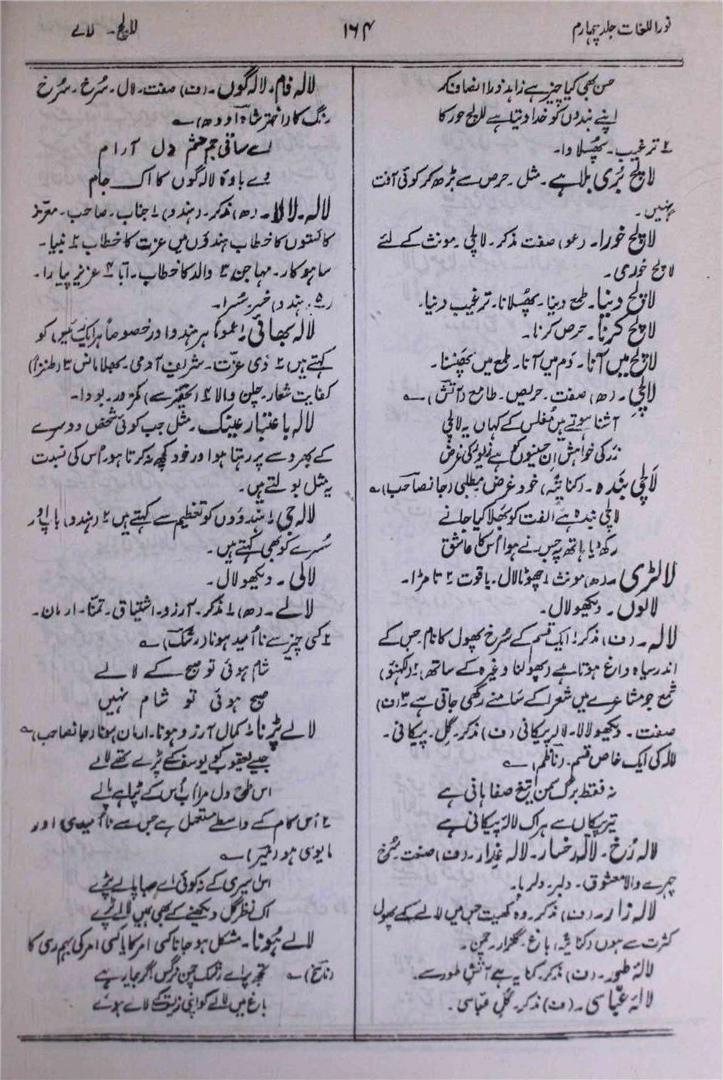 نور اللغات جلد چہارم
۱۶۴
لالچ۔ لالے
حسن بھی کیا چیز ہے زاہد ذرا انصاف کر
اپنے بندوں کو خدا دیتا ہے لالچ حور کا
۲ ترغیب۔ پھسلاوا۔
لالچ بُری بلا ہے۔ مثل۔ حرص سے بڑھ کر کوئی آفت
نہیں۔
لالچ خورا۔ (عو) صفت مذکر۔ لالچی۔ مونث کے لئے
لالچ خوری۔
لالچ دینا۔ طمع دینا۔ پھسلانا۔ ترغیب دینا۔
لالچ کرنا۔ حرص کرنا۔
لالچ میں آنا۔ دَم میں آنا۔ طمع میں پھنسنا۔
لالچی۔ (ھ) صفت۔ حریص۔ طامع (آتش) ؎
آشنا ہوتے ہیں مُفلس کے کہاں یہ لالچی
زر کی خواہش اِن حسینوں کو ہے زیور کی غرض
لالچی بندہ۔ (کنایۃً) خود غرض مطلبی (جانصاحب) ؎
لالچی بندہ ہے الفت کو بھلا کیا جانے
رکھ دیا ہاتھ پہ جس نے ہوا اُس کا عاشق
لالڑی۔ (ھ) مونث ۱ چھوٹا لال۔ یاقوت ۲ تامڑا۔
لالوں۔ دیکھو لال۔
لالہ۔ (ف) مذکر ۱ ایک قسم کے سُرخ پھول کا نام جس کے
اندر سیاہ داغ ہوتا ہے (پھولنا وغیرہ کے ساتھ) ۲ (لکھنؤ)
شمع جو مشاعرے میں شعرا کے سامنے رکھی جاتی ہے ۳ (ف)
صفت۔ دیکھو لالا۔ لالہ پیکانی (ف) مذکر۔ گُلِ۔ پیکانی۔
لالہ کی ایک خاص قسم۔ (ناظم) ؎
نہ فقط برگ سمن تیغ صفاہانی ہے
تیر پیکاں سے ہر اک لالۂ پیکانی ہے
لالہ رُخ۔ لالہ رُخسار۔ لالہ عِذار۔ (ف) صفت۔ سُرخ
چہرے والا معشوق۔ دلبر۔ دلربا۔
لالہ زار۔ (ف) مذکر۔ وہ کھیت جس میں لالے کے پھول
کثرت سے ہوں (کنایۃً) باغ۔ گلزار۔ چمن۔
لالۂ طور۔ (ف) مذکر۔ کنایہ ہے آتشِ طور سے۔
لالۂ عباسی۔ (ف) مذکر۔ گل عباسی۔
لالہ فام۔ لالہ گوں۔ (ف) صفت۔ لال۔ سُرخ۔ سُرخ
رنگ کا (اختر شاہ اودھ) ؎
اے ساقی دل آرام
دے بادۂ لالہ گوں کا اک جام
لالہ۔ لالا۔ (ھ) مذکر۔ (ہندو) ۱ جناب۔ صاحب۔ معزز
کائستوں کا خطاب ہندوؤں میں عزت کا خطاب ۲ بنیا۔
ساہوکار۔ مہاجن ۳ والد کا خطاب۔ آبا ۴ عزیز پیارا۔
(۵۔ ہندو) خُسر۔ سُسرا۔
لالہ بھائی۔ ۱ عموماً ہر ہندو اور خصوصاً ہر ایک کو
کہتے ہیں ۲ ذی عزّت۔ شریف آدمی۔ بھلا مانس ۳ (طنزاً)
کفایت شعار۔ چلن والا ۴ (تحقیر سے) کمزور۔ بودا۔
لالہ باعتبار عینک۔ مثل جب کوئی شخص دوسرے
کے بھروسے پر رہتا ہو اور خود کچھ نہ کرتا ہو۔ اُس کی نسبت
یہ مثل بولتے ہیں۔
لالہ جی۔ ۱ ہندوؤں کو تعظیم سے کہتے ہیں ۲ (ہندو) باپ اور
سُسرے کو بھی کہتے ہیں۔
لالی۔ دیکھو لال۔
لالے۔ (ھ) ۱ مذکر۔ آرزو۔ اشتیاق۔ تمنّا۔ ارمان۔
۲ کسی چیز سے ناامید ہونا (رشک) ؎
شام ہوئی تو صبح کے لالے
صبح ہوئی تو شام نہیں
لالے پڑنا ۱ کمال آرزو ہونا۔ ارمان ہونا (جانصاحب) ؎
جیسے یعقوب کو یوسف کے پڑے تھے لالے
اس طرح دل مرا اب اُس کے لالے
۲ اُس کام کے واسطے مستعمل ہے جس سے ناامیدی اور
مایوسی ہو (میر) ؎
اس اسیری کے نہ کوئی اے صبا پالے پڑے
اک نظر گل دیکھنے کے بھی ہمیں لالے پڑے
لالے ہونا۔ مشکل ہو جانا کسی امر کا یا کسی امر کی بہم رسی کا
(ناسخ) ؎ تجھ پر اے رشک چمن نرگس اگر
باغ میں لالے کو اپنی زیست کے لالے ہوئے